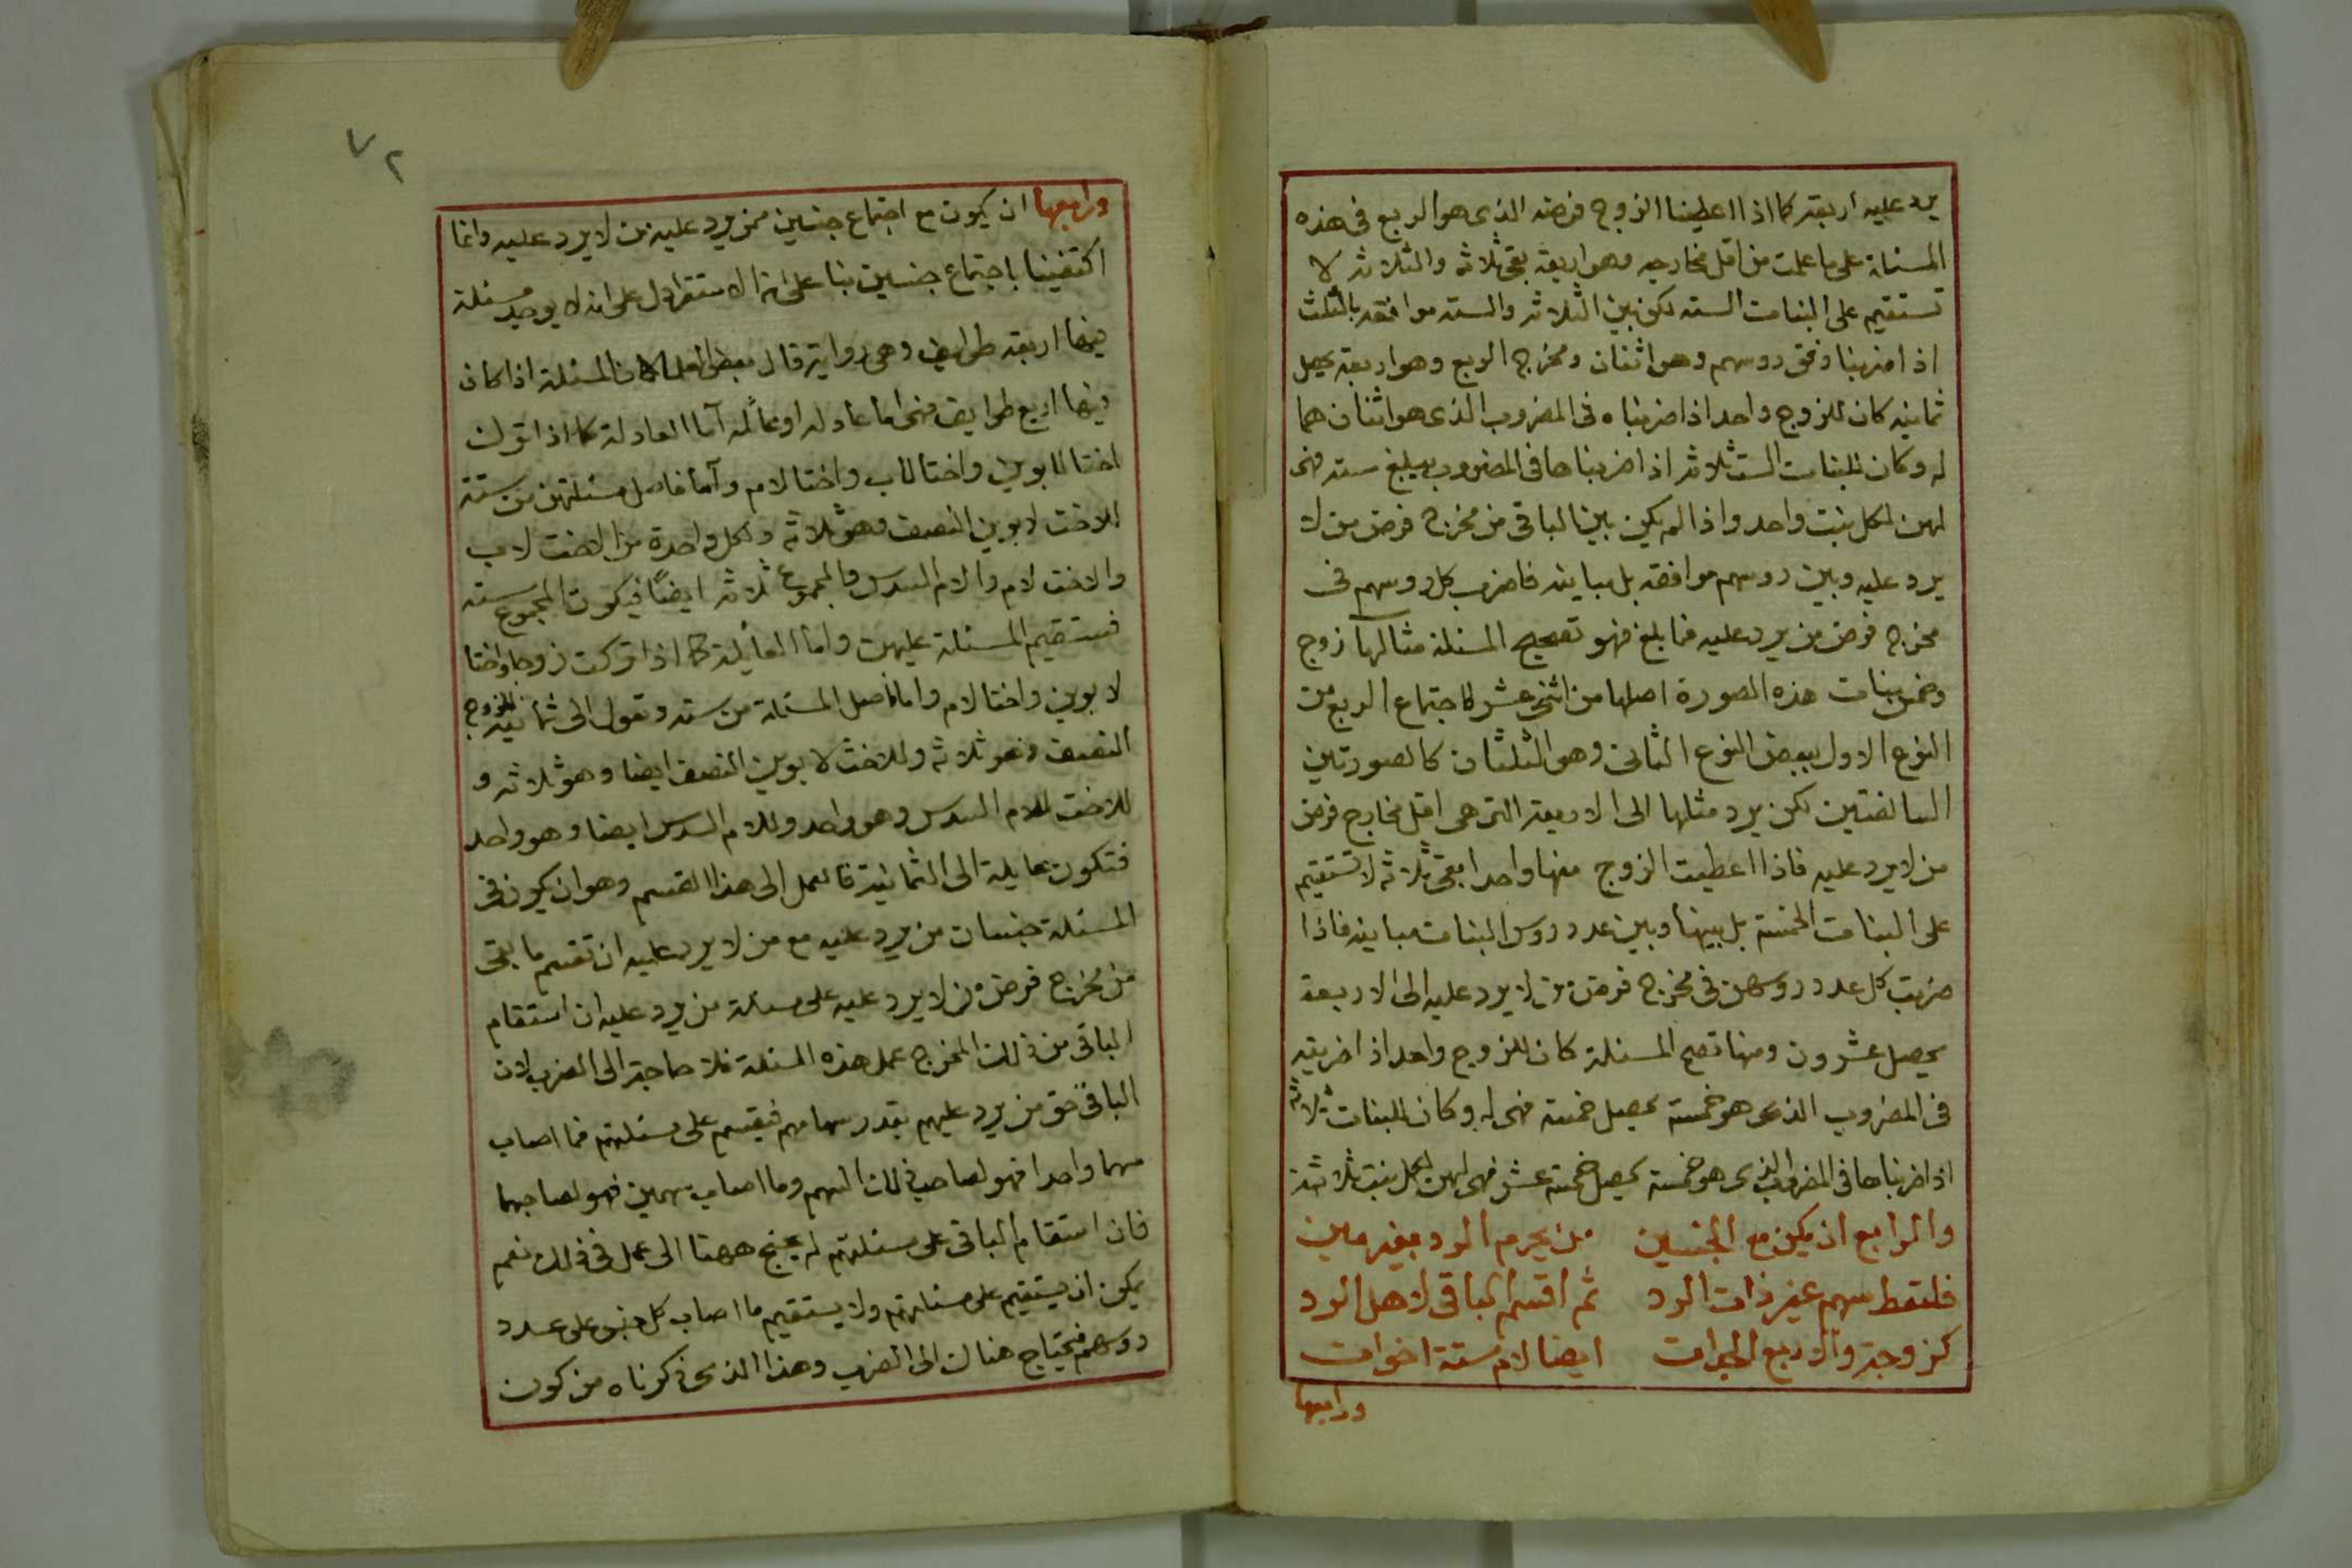 يرد عليه اربعة كما اذا اعطينا الزوج فرضه الذى هو الربع فى هذه
المسئلة على ما علمت من اقل مخارجه وهو اربعة بقى ثلاثه والثلاثة لا
تستقيم على البنات السته لكن بين الثلاثه والسته موافقه بالثلث
اذا ضربنا وفق روسهم وهو اثنان ومخرج الربع وهو اربعة يحصل
ثمانيه كان للزوج واحد اذا ضربناه فى المضروب الذى هو اثنان هما
له وكان للبنات الست ثلاثة اذا ضربناها فى المضروب يبلغ سته فهى
لهن لكل بنت واحد واذا لم يكن بين الباقى من مخرج فرض من لا
يرد عليه وبين روسهم موافقه بل مباينه فاضرب كل روسهم فى
مخرج فرض من يرد عليه فما بلغ فهو تصحيح المسئلة مثالها زوج
وخمس بنات هذه الصورة اصلها من اثنى عشر لاجتماع الربع من
النوع الاول ببعض النوع الثانى وهو الثلثان كالصورتين
السالفتين لكن يرد مثلها الى الاربعة التى هى اقل مخارج فرض
من لا يرد عليه فاذا اعطيت الزوج منها واحدا بقى ثلاثه لا تستقيم
على البنات الخمسة بل بينها وبين عدد روس البنات مباينه فاذا
ضربت كل عدد روسهن فى مخرج فرض من لا يرد عليه الى الاربعة
يحصل عشرون ومنها تصح المسئلة كان للزوج واحد اذا ضربته
فى المضروب الذى هو خمسة يحصل خمسة فهى له وكان للبنات ثلاثه
اذا ضربناها فى المضروب الذى هو خمسة يحصل خمسة عشر فهى لهن لكل بنت ثلاثة
والرابع ان يكن مع الجنسين من يحرم الرد بغير مين
فلتعط سهم غير ذات الرد ثم اقسم الباقى لاهل الرد
كزوجة والاربع الجدات ايضا لام ستة اخوات
ورابعها
٧٢
ورابعها ان يكون مع اجتماع جنسين ممن يرد عليه من لا يرد عليه وانما
اكتفينا باجتماع جنسين بنا على ان الاستقرا دل على انه لا يوجد مسئلة
فيها اربعة طوايف وهى رواية قال بعض العلما لان المسئلة اذا كان
فيها اربع طوايف فهى اما عادله او عائله اما العادلة كما اذا ترك
اختا لابوين واختا لاب واختا لام واما فاصل مسئلتهن من ستة
للاخت لابوين النصف وهو ثلاثه ولكل واحدة من الاخت لاب
والاخت لام والام السدس والمجموع ثلاثه ايضًا فيكون المجموع سته
فتستقيم المسئلة عليهن واما العايلة كما اذا تركت زوجا واختا
لابوين واختا لام واما فاصل المسئلة من سته وتعول الى ثمانية للزوج
النصف وهو ثلاثه وللاخت لابوين النصف ايضا وهو ثلاثه و
للاخت للام السدس وهو واحد وللام السدس ايضا وهو واحد
فتكون عايلة الى الثمانية فالعمل الى هذا القسم وهو ان يكون فى
المسئلة جنسان من يرد عليه مع من لا يرد عليه ان تقسم ما بقى
من مخرج فرض من لا يرد عليه على مسئلة من يرد عليه ان استقام
الباقى من ذلك المخرج عمل هذه المسئلة فلا حاجة الى الضرب لان
الباقى حق من يرد عليهم بقدر سهامهم فيقسم على مسئلتهم فما اصاب
سهما واحدا فهو لصاحب ذلك السهم وما اصاب سهمين فهو لصاحبهما
فان استقام الباقى على مسئلتهم لم يحتج ههنا الى عمل فى ذلك نعم
يمكن ان يستقيم على مسئلتهم ولا يستقيم ما اصاب كل جنس على عدد
روسهم فيحتاج هناك الى الضرب وهذا الذى ذكرناه من كون